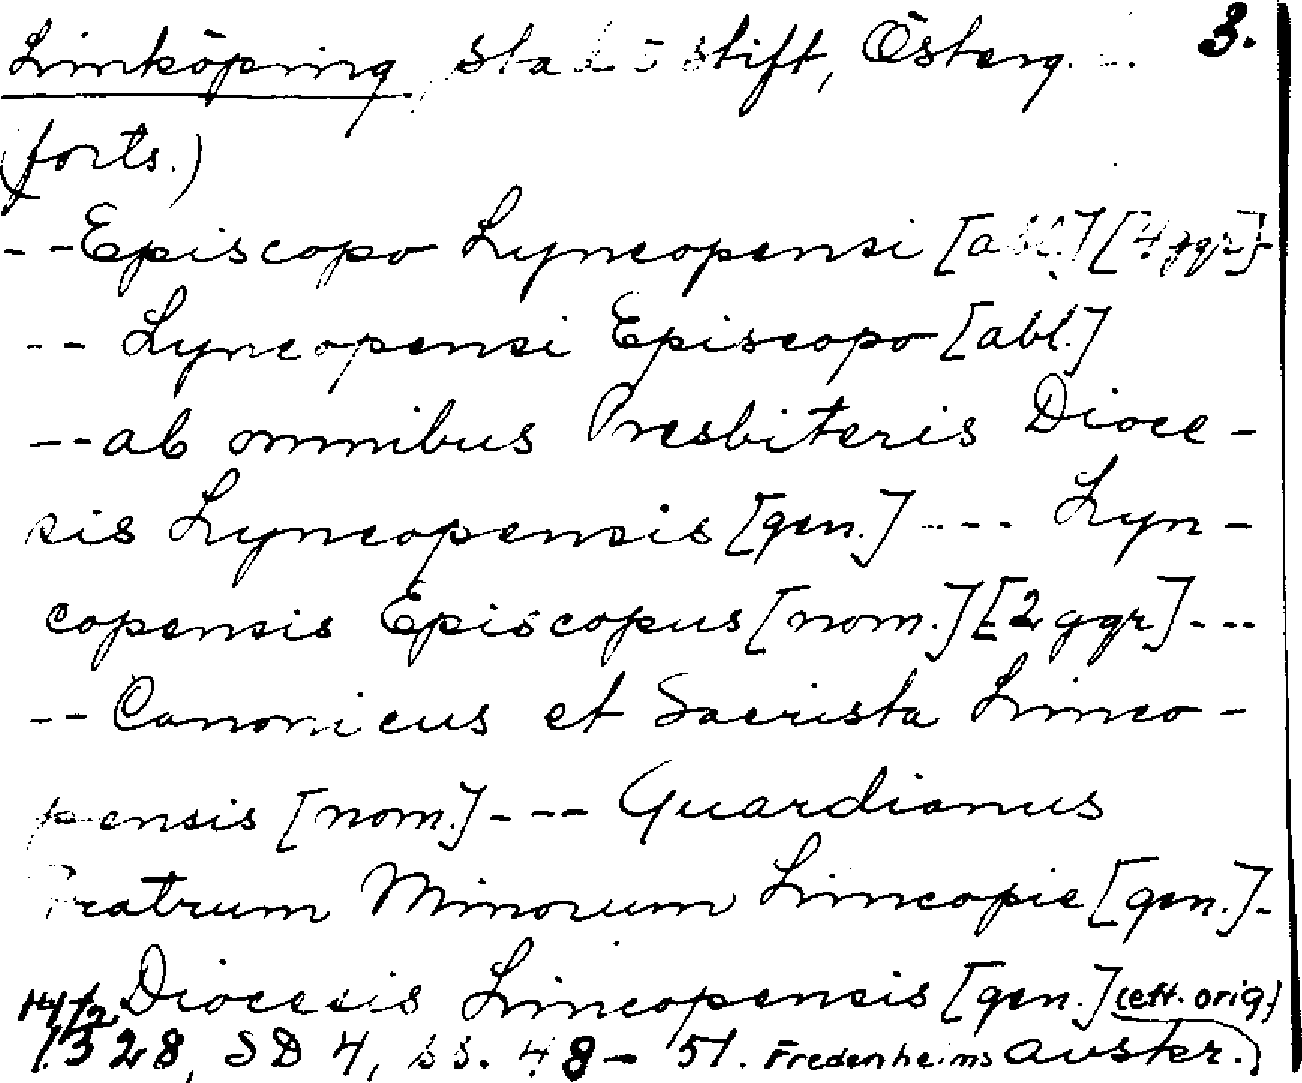 Linköping, stad o stift, Österg. 3.
(forts.)
-- Episcopo Lyncopensi [abl.] [4 ggr] -
-- Lyncopensi Episcopo [abl.]
-- ab omnibus Presbiteris Dioce-
sis Lyncopensis [gen.] ---- Lyn-
copensis Episcopus [nom.] [2 ggr] ---
-- Canonicus et Sacrista Linco-
pensis [nom.] --- Guardianus
Fratrum Minorum Lincopie [gen.] -
14/2 Diocesis Lincopensis [gen.] (eft. orig.)
1328, SD 4, ss. 48-51. Fredenheims avskr.)